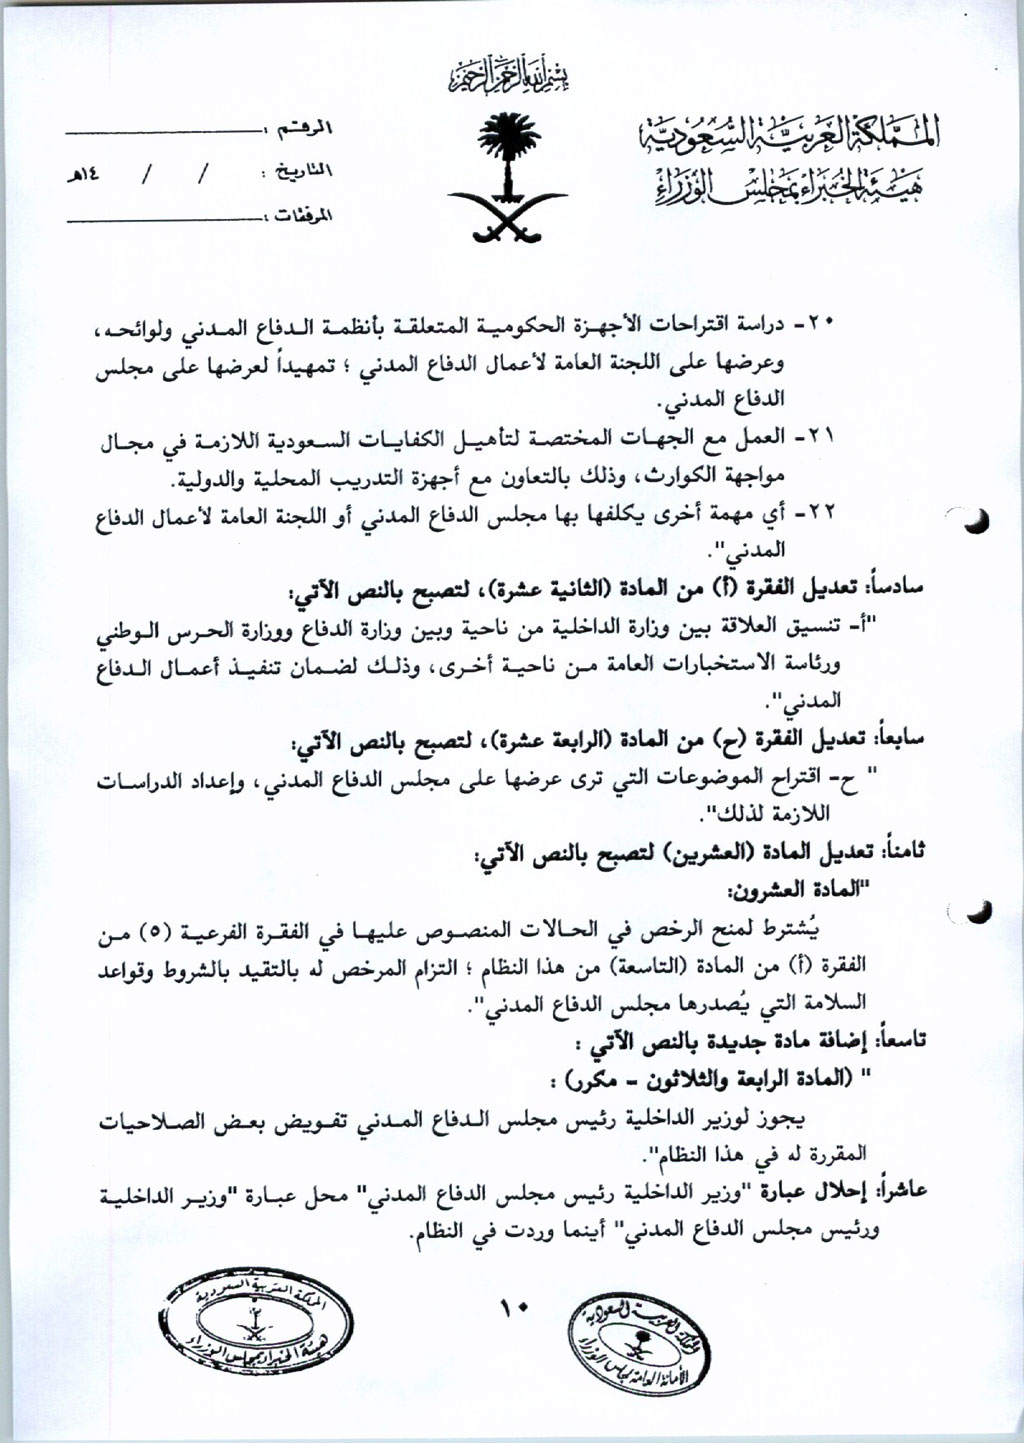 بسم الله الرحمن الرحيم
المملكة العربية السعودية
هيئة الخبراء بمجلس الوزراء
الرقم :
التاريخ : / / ١٤هـ
المرفقات :
٢٠- دراسة اقتراحات الأجهزة الحكومية المتعلقة بأنظمة الدفاع المدني ولوائحه،
وعرضها على اللجنة العامة لأعمال الدفاع المدني ؛ تمهيداً لعرضها على مجلس
الدفاع المدني.
٢١- العمل مع الجهات المختصة لتأهيل الكفايات السعودية اللازمة في مجال
مواجهة الكوارث، وذلك بالتعاون مع أجهزة التدريب المحلية والدولية.
٢٢- أي مهمة أخرى يكلفها بها مجلس الدفاع المدني أو اللجنة العامة لأعمال الدفاع
المدني".
سادساً: تعديل الفقرة (أ) من المادة (الثانية عشرة)، لتصبح بالنص الآتي:
"أ- تنسيق العلاقة بين وزارة الداخلية من ناحية وبين وزارة الدفاع ووزارة الحرس الوطني
ورئاسة الاستخبارات العامة من ناحية أخرى، وذلك لضمان تنفيذ أعمال الدفاع
المدني".
سابعاً: تعديل الفقرة (ح) من المادة (الرابعة عشرة)، لتصبح بالنص الآتي:
" ح- اقتراح الموضوعات التي ترى عرضها على مجلس الدفاع المدني، وإعداد الدراسات
اللازمة لذلك".
ثامناً: تعديل المادة (العشرين) لتصبح بالنص الآتي:
"المادة العشرون:
يُشترط لمنح الرخص في الحالات المنصوص عليها في الفقرة الفرعية (٥) من
الفقرة (أ) من المادة (التاسعة) من هذا النظام ؛ التزام المرخص له بالتقيد بالشروط وقواعد
السلامة التي يُصدرها مجلس الدفاع المدني".
تاسعاً: إضافة مادة جديدة بالنص الآتي :
" (المادة الرابعة والثلاثون - مكرر) :
يجوز لوزير الداخلية رئيس مجلس الدفاع المدني تفويض بعض الصلاحيات
المقررة له في هذا النظام".
عاشراً: إحلال عبارة "وزير الداخلية رئيس مجلس الدفاع المدني" محل عبارة "وزير الداخلية
ورئيس مجلس الدفاع المدني" أينما وردت في النظام.
١٠
المملكة العربية السعودية
هيئة الخبراء بمجلس الوزراء
المملكة العربية السعودية
الأمانة العامة لمجلس الوزراء